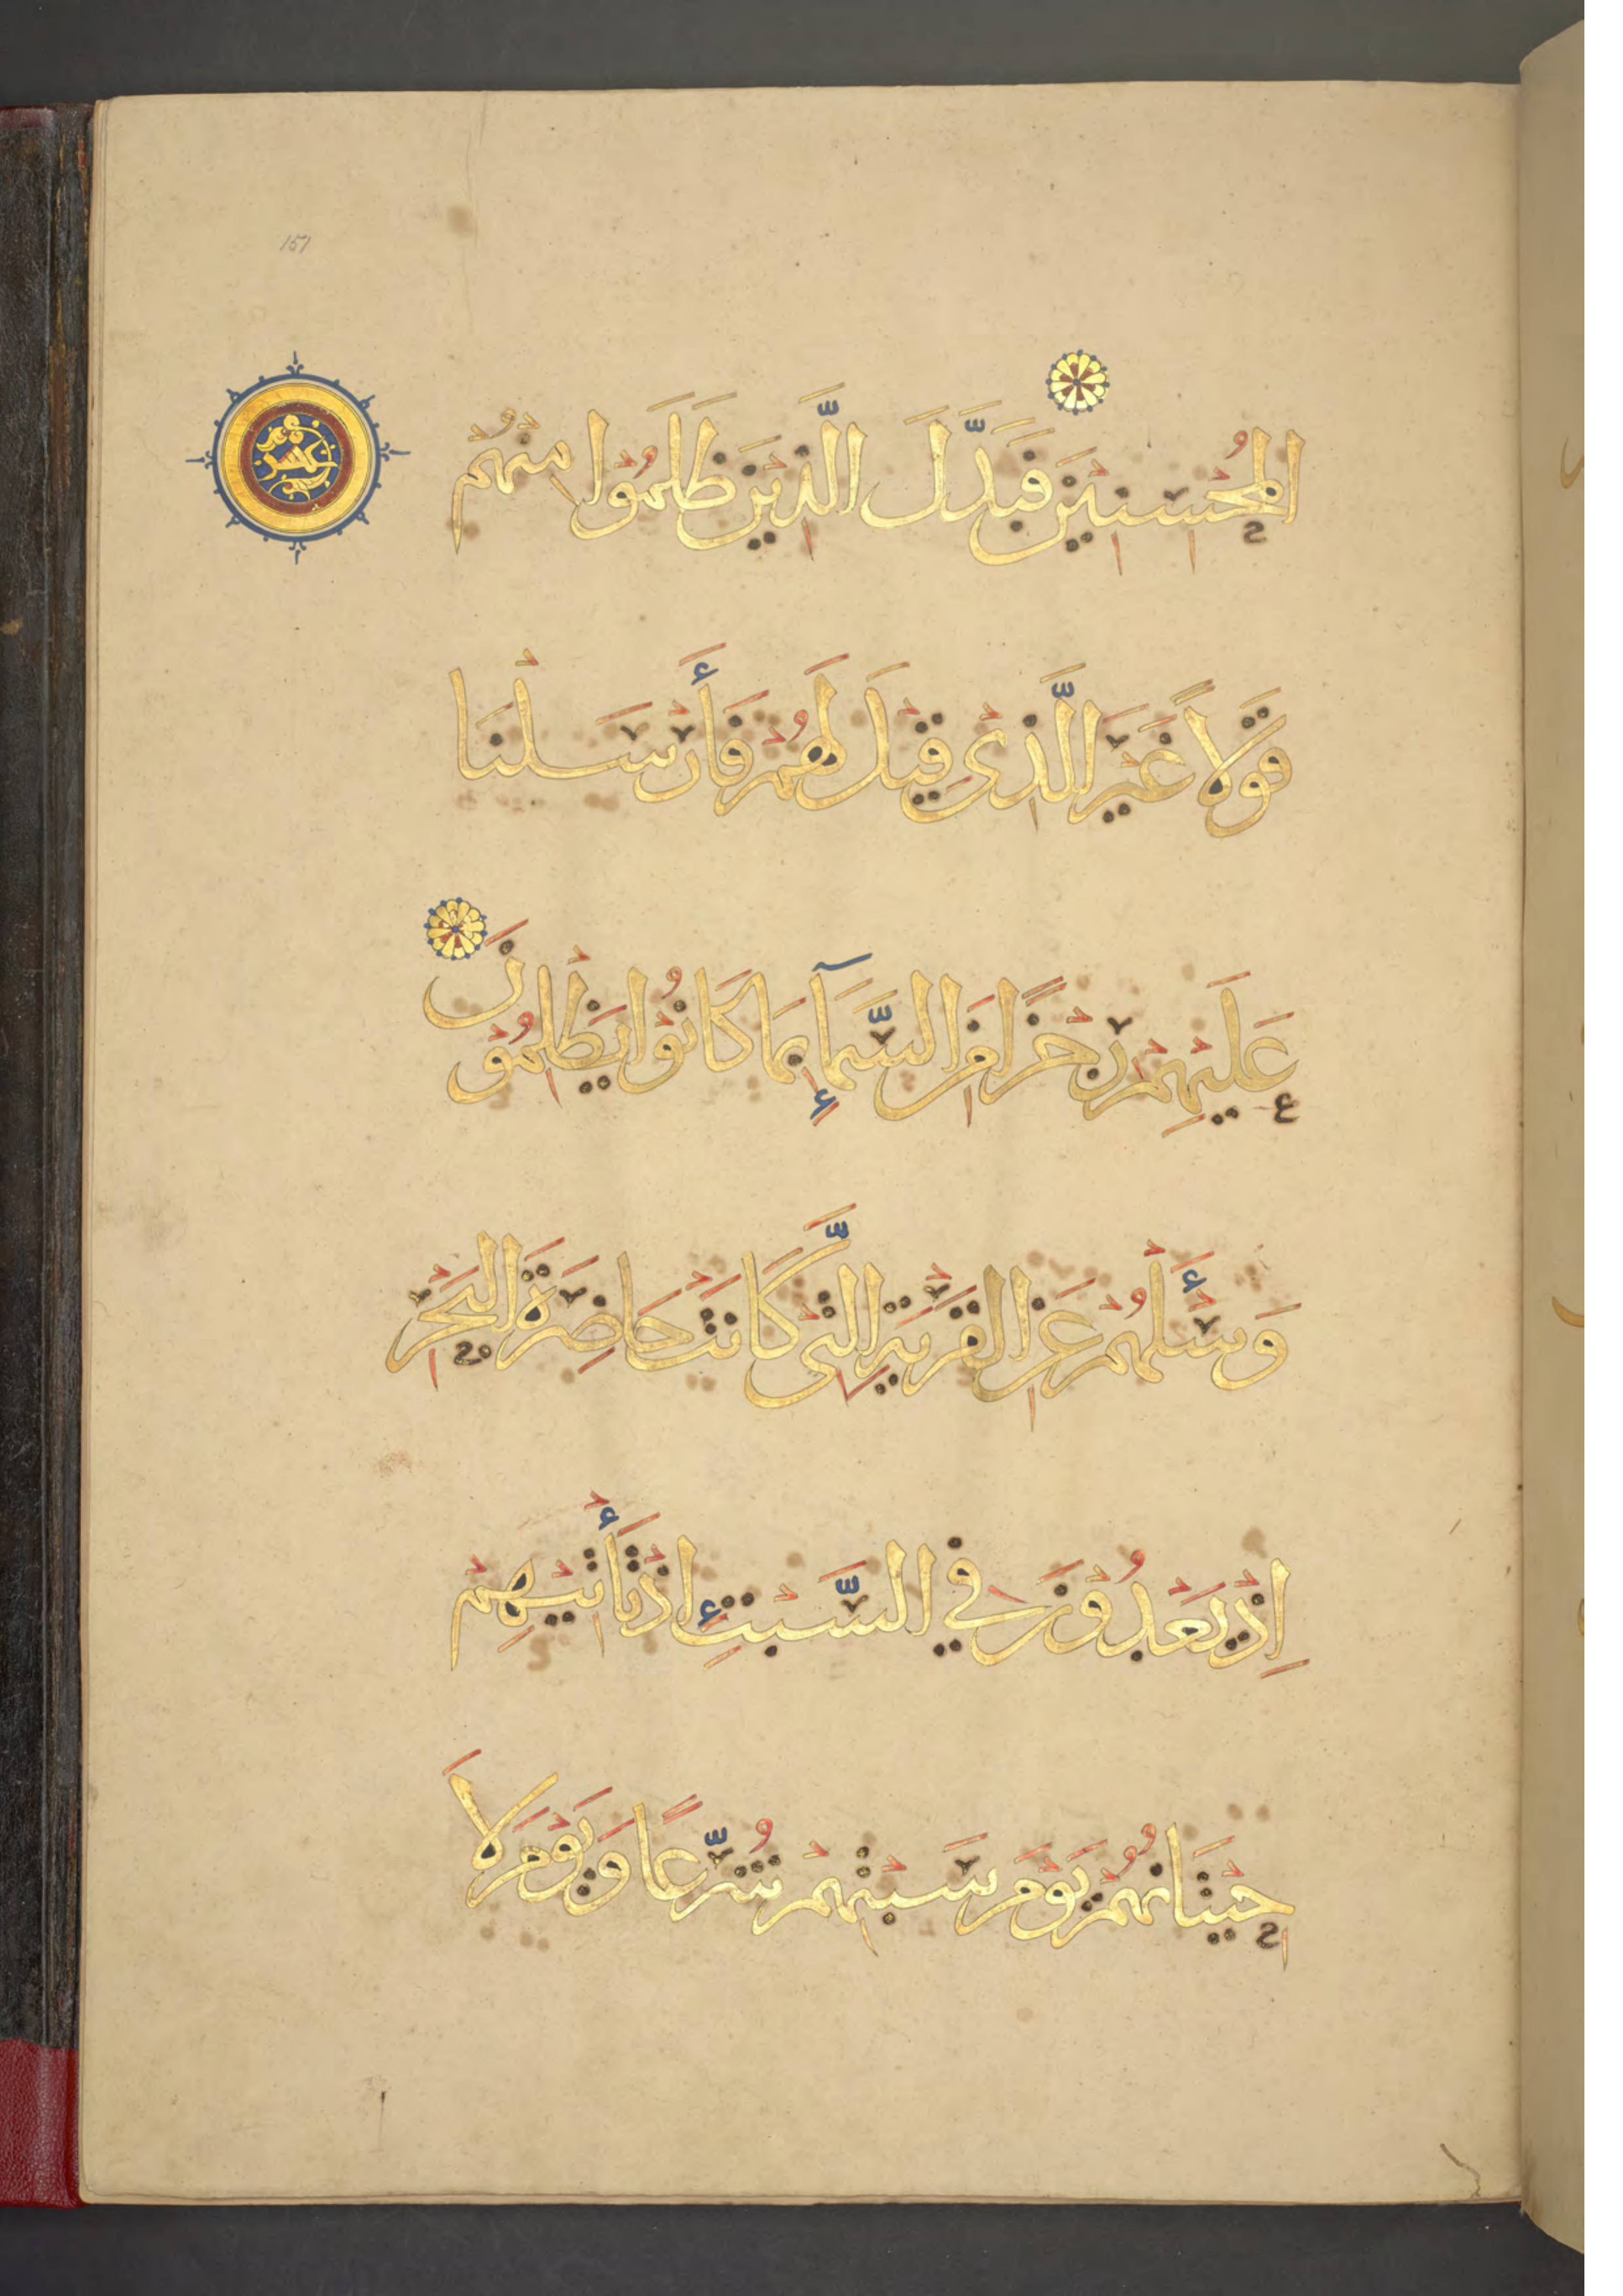 151
الْمُحْسِنِينَ فَبَدَّلَ الَّذِينَ ظَلَمُوا مِنْهُمْ
قَوْلًا غَيْرَ الَّذِي قِيلَ لَهُمْ فَأَرْسَلْنَا
عَلَيْهِمْ رِجْزًا مِنَ السَّمَآءِ بِمَا كَانُوا يَظْلِمُونَ
وَسْئَلْهُمْ عَنِ الْقَرْيَةِ الَّتِي كَانَتْ حَاضِرَةَ الْبَحْرِ
إِذْ يَعْدُونَ فِي السَّبْتِ إِذْ تَأْتِيهِمْ
حِيتَانُهُمْ يَوْمَ سَبْتِهِمْ شُرَّعًا وَيَوْمَ لَا